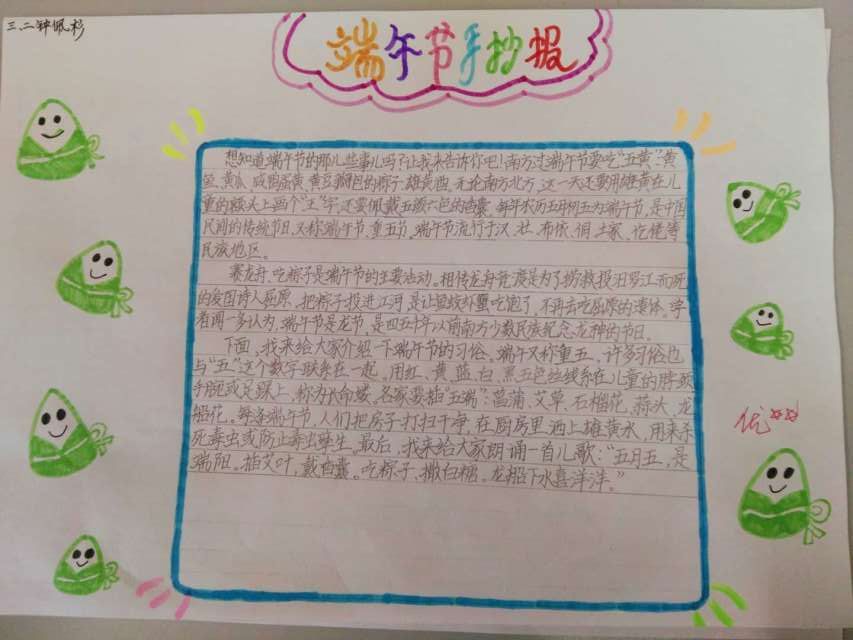 三、二钟佩杉
端午节手抄报
想知道端午节的那儿些事儿吗?让我来告诉你吧!南方过端午节要吃“五黄”:黄
鱼、黄瓜、咸鸭蛋黄、黄豆瓣包的粽子、雄黄酒,无论南方北方,这一天还要用雄黄在儿
童的额头上画个“王”字,还要佩戴五颜六色的香囊。每年农历五月初五为端午节,是中国
民间的传统节日,又称端阳节、重五节。端午节流行于汉、壮、布依、侗、土家、仡佬等
民族地区。
赛龙舟、吃粽子是端午节的主要活动。相传龙舟竞渡是为了捞救投汨罗江而死
的爱国诗人屈原,把粽子投进江河,是让鱼蛟虾蟹吃饱了,不再去吃屈原的遗体。学
者闻一多认为,端午节是龙节,是四五千年以前南方少数民族纪念龙神的节日。
下面,我来给大家介绍一下端午节的习俗。端午又称重五,许多习俗也
与“五”这个数字联系在一起。用红、黄、蓝、白、黑五色丝线系在儿童的脖颈、
手腕或足踝上,称为长命缕。各家要插“五端”:菖蒲、艾草、石榴花、蒜头、龙
船花。每条端午节,人们把房子打扫干净,在厨房里洒上雄黄水,用来杀
死毒虫或防止毒虫孳生。最后,我来给大家朗诵一首儿歌:“五月五,是
端阳。插艾叶,戴香囊。吃粽子,撒白糖。龙船下水喜洋洋。”
优